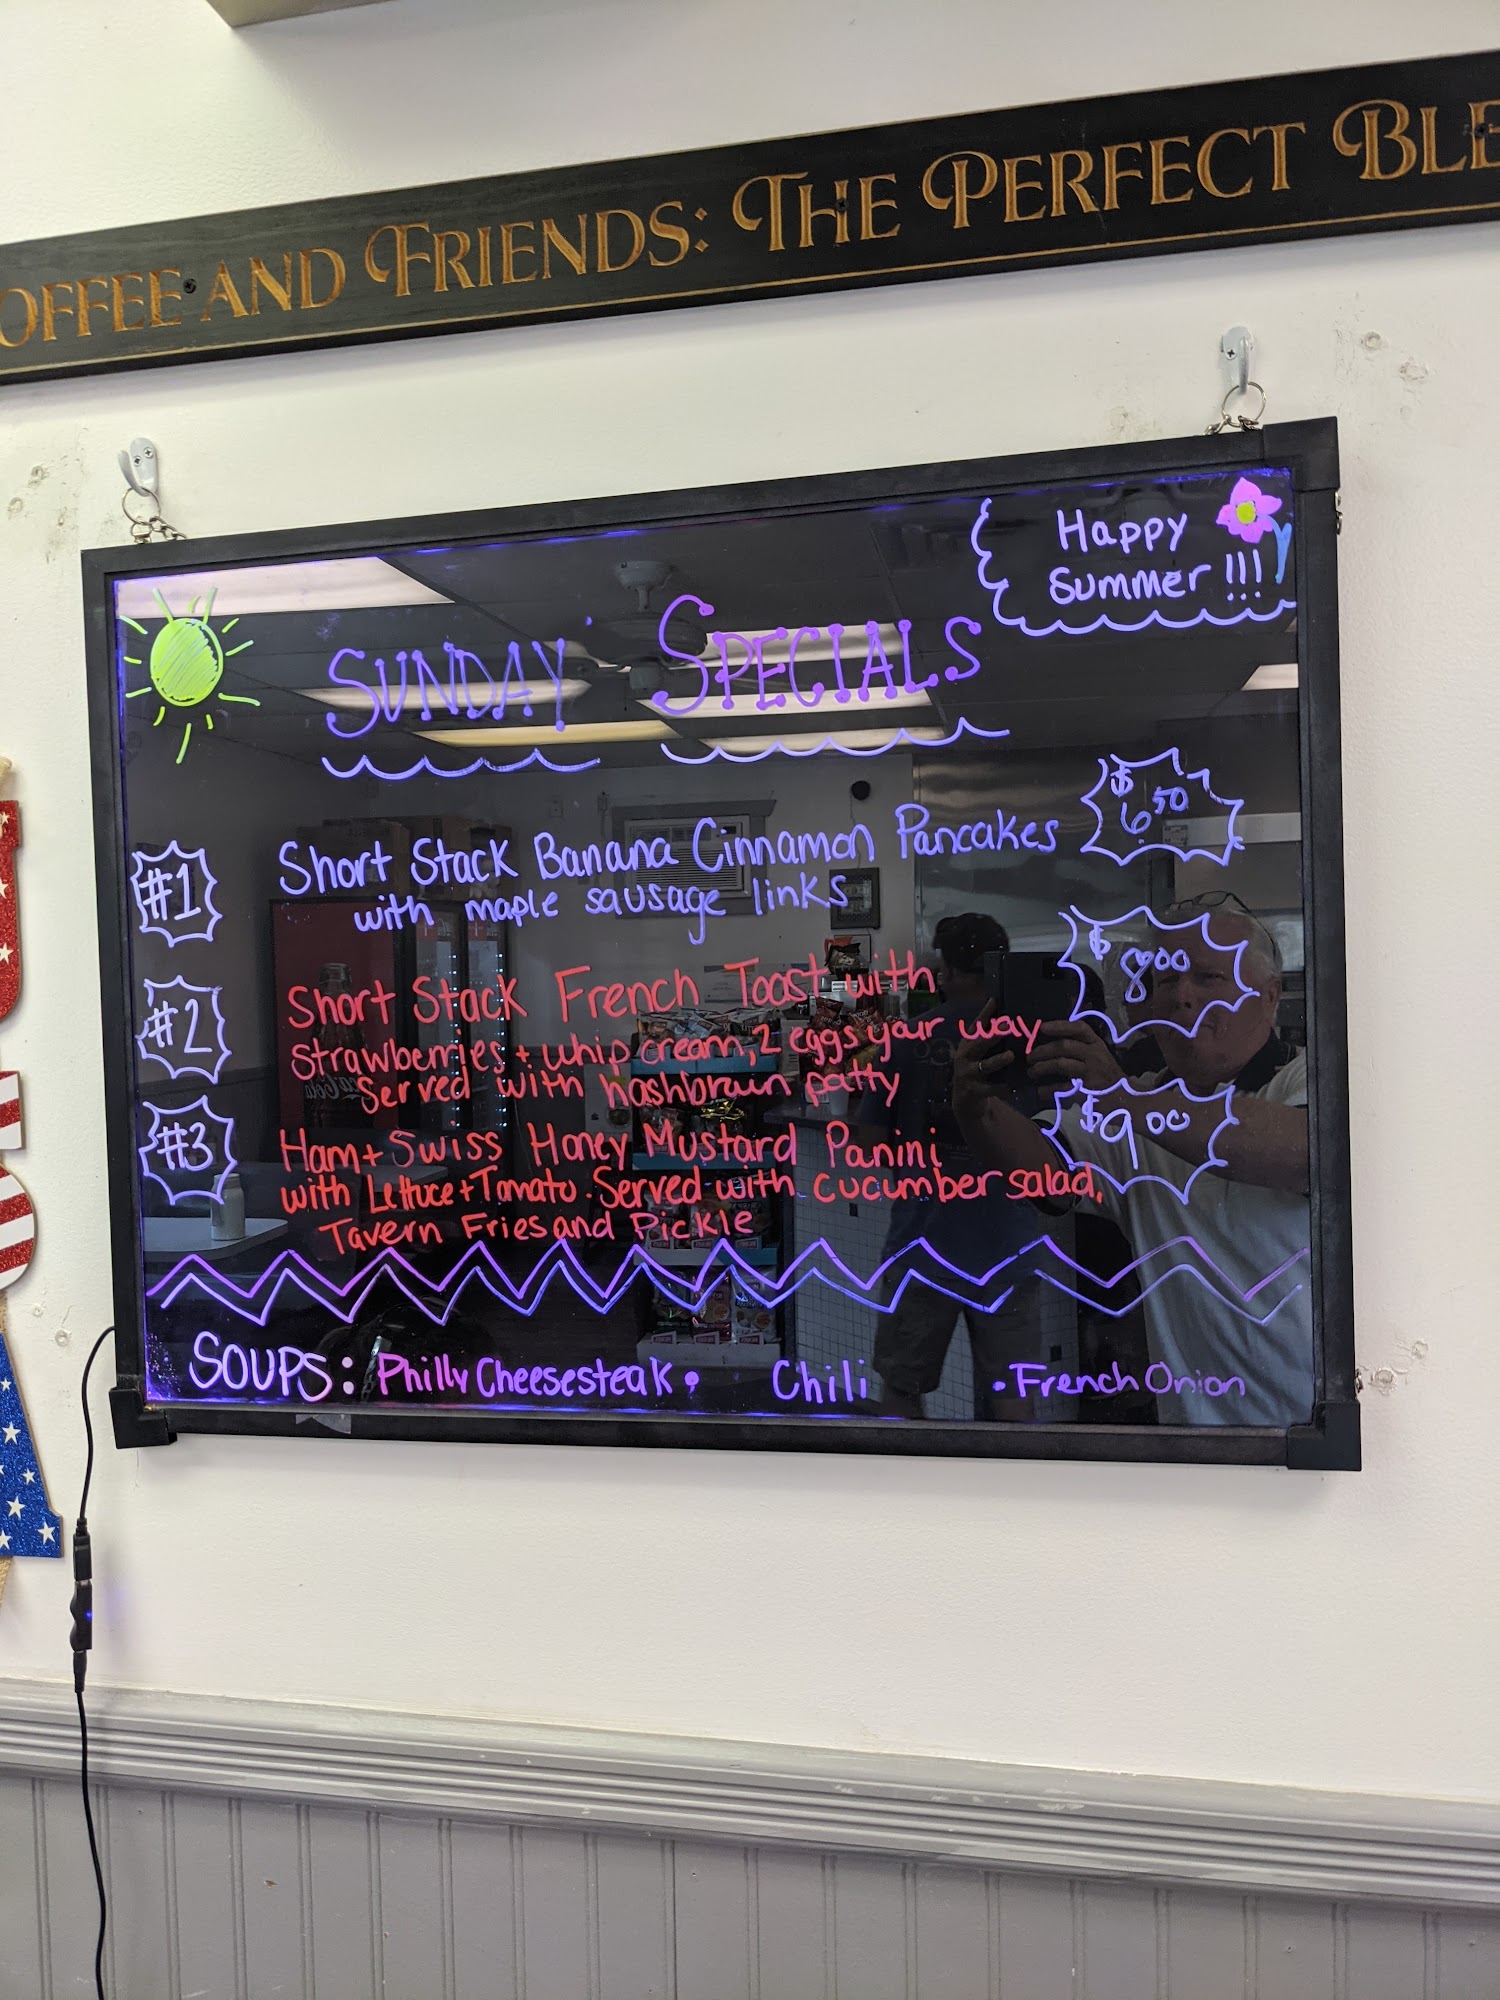 OFFEE AND FRIENDS: THE PERFECT BLE
Happy
Summer!!!
SUNDAY SPECIALS
#1
Short Stack Banana Cinnamon Pancakes
with maple sausage links
$6.50
#2
Short Stack French Toast with
Strawberries + whip cream, 2 eggs your way
Served with hashbrown patty
$8.00
#3
Ham + Swiss Honey Mustard Panini
with Lettuce + Tomato. Served with cucumber salad,
Tavern Fries and Pickle
$9.00
SOUPS: Philly Cheesesteak • Chili • French Onion